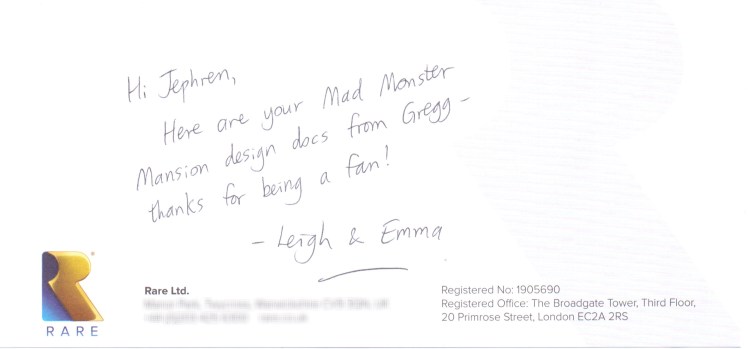 Hi Jephren,
Here are your Mad Monster
Mansion design docs from Gregg -
thanks for being a fan!
- Leigh & Emma
RARE
Rare Ltd.
Registered No: 1905690
Registered Office: The Broadgate Tower, Third Floor,
20 Primrose Street, London EC2A 2RS